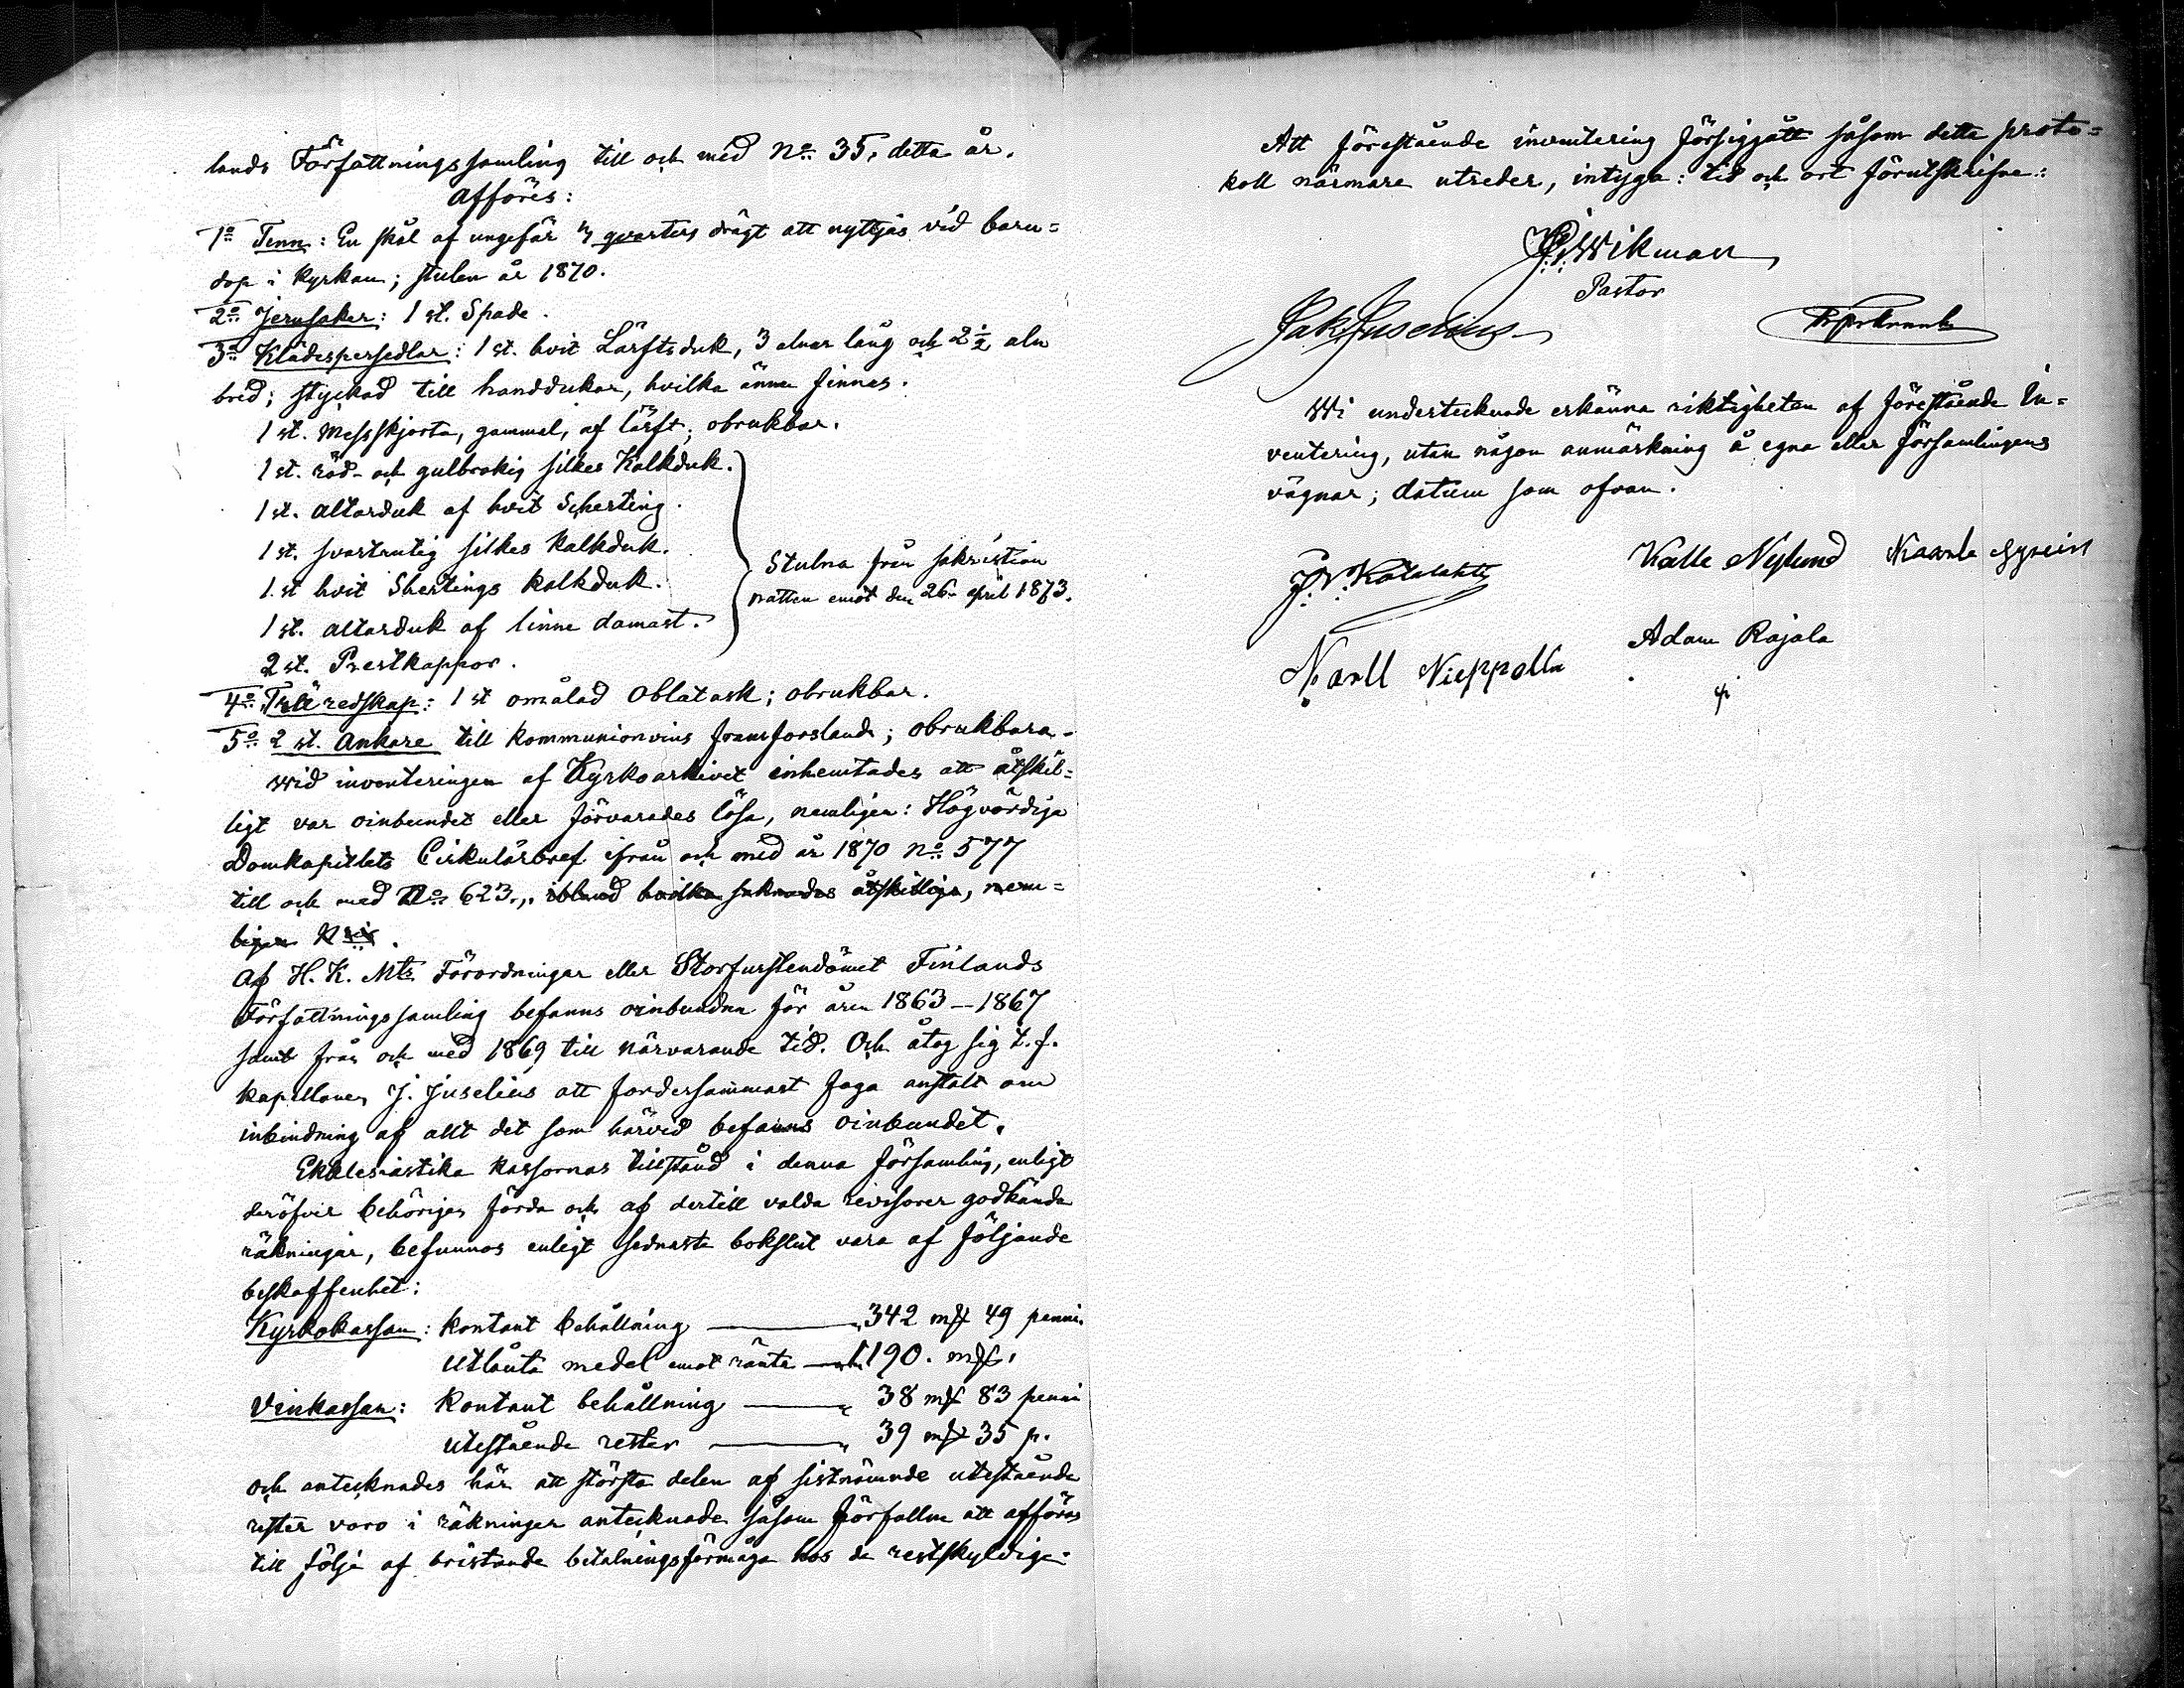 lands Författningssamling till och med No 35, detta år.
Afföres:
1o Tenn: En skål af ungefär qvarters drägt att nyttjas vid barn=
dop i kyrkan; stulen år 1870.
2o Jernsaker: 1 st. Spade.
3o Klädespersedlar: 1 st. hvit Lärftsduk, 3 alnar lång och 2 1/2 aln
bred; styckad till handdukar, hvilka ännu finnas.
1 st. Messskjorta, gammal, af lärft; obrukbar.
1 st. röd- och gulbrokig silkes Kalkduk.
1 st. altarduk af hvit Scherting.
1 st. svartrutig silkes kalkduk.
1 st hvit Shertings kalkduk.
1 st. altarduk af linne damast.
Stulna från sakristian
natten emot den 26 april 1873.
2 st. Prestkappor.
4o Träredskap: 1 st omålad Oblatask; obrukbar.
5o 2 st. Ankare till kommunionvins framforslande; obrukbara.
Wid inventeringen af Kyrkoarkivet inhemtades att åtskil=
ligt var oinbundet eller förvarades lösa, nemligen: Högvördiga
Domkapitlets Cirkulärbref ifrån och med år 1870 No 577
till och med No 623., ibland hvilka saknades åtskilliga, nem=
ligen N
Af H. K. Mts Förordningar eller Storfurstendömet Finlands
Författningssamling befanns oinbunden för åren 1863–1867
samt från och med 1869 till närvarande tid. Och åtog sig t.f.
kapellanen J. Juselius att fordersammast foga anstalt om
inbindning af allt det som härvid befanns oinbundet.
Ekklesiastika kassornas tillstånd i denna församling, enligt
deröfver behörigen förda och af dertill valda revisorer godkända
räkningar, befunnos enligt sednaste bokslut vara af följande
beskaffenhet:
Kyrkokassan: kontant behållning — 342 mk 49 penni.
Utlånta medel emot ränta — 1190. mk.
Vinkassan: Kontant behållning — 38 mk 83 penni
Utestående rester — 39 mk 35 p.
och antecknades här att största delen af sistnämnde utestående
rester voro i räkningen antecknade såsom förfallna att afföras
till följe af bristande betalningsförmåga hos de restskyldige.
Att förestående inventering försiggått såsom detta proto=
koll närmare utreder, intyga: tid och ort förutskrifne:
Wikman
Pastor
Jak Juselius
Wi undertecknade erkänna riktigheten af förestående In=
ventering, utan någon anmärkning å egna eller församlingens
vägnar; datum som ofvan.
Kalle Nylund
Adam Rajala